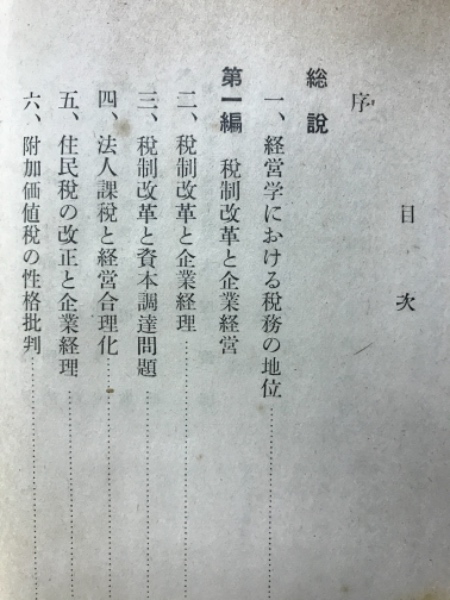 目次
序
総説
一、経営学における税務の地位
第一編 税制改革と企業経営
二、税制改革と企業経理
三、税制改革と資本調達問題
四、法人課税と経営合理化
五、住民税の改正と企業経理
六、附加価値税の性格批判